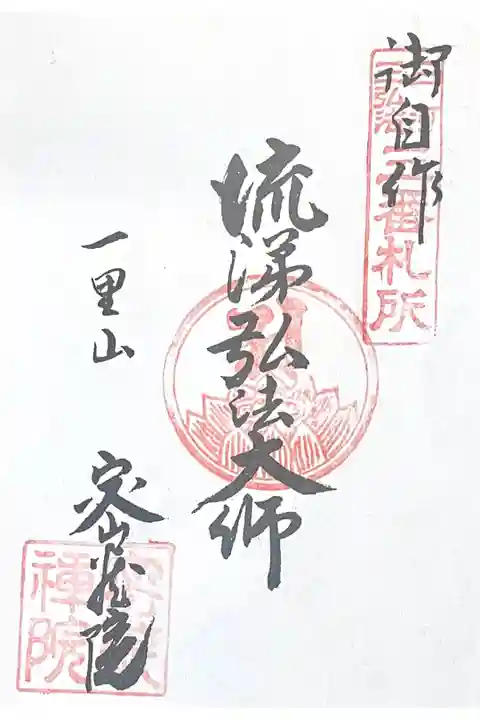 御自作
番札所
流涕弘法大師
一里山
密蔵院
禪院